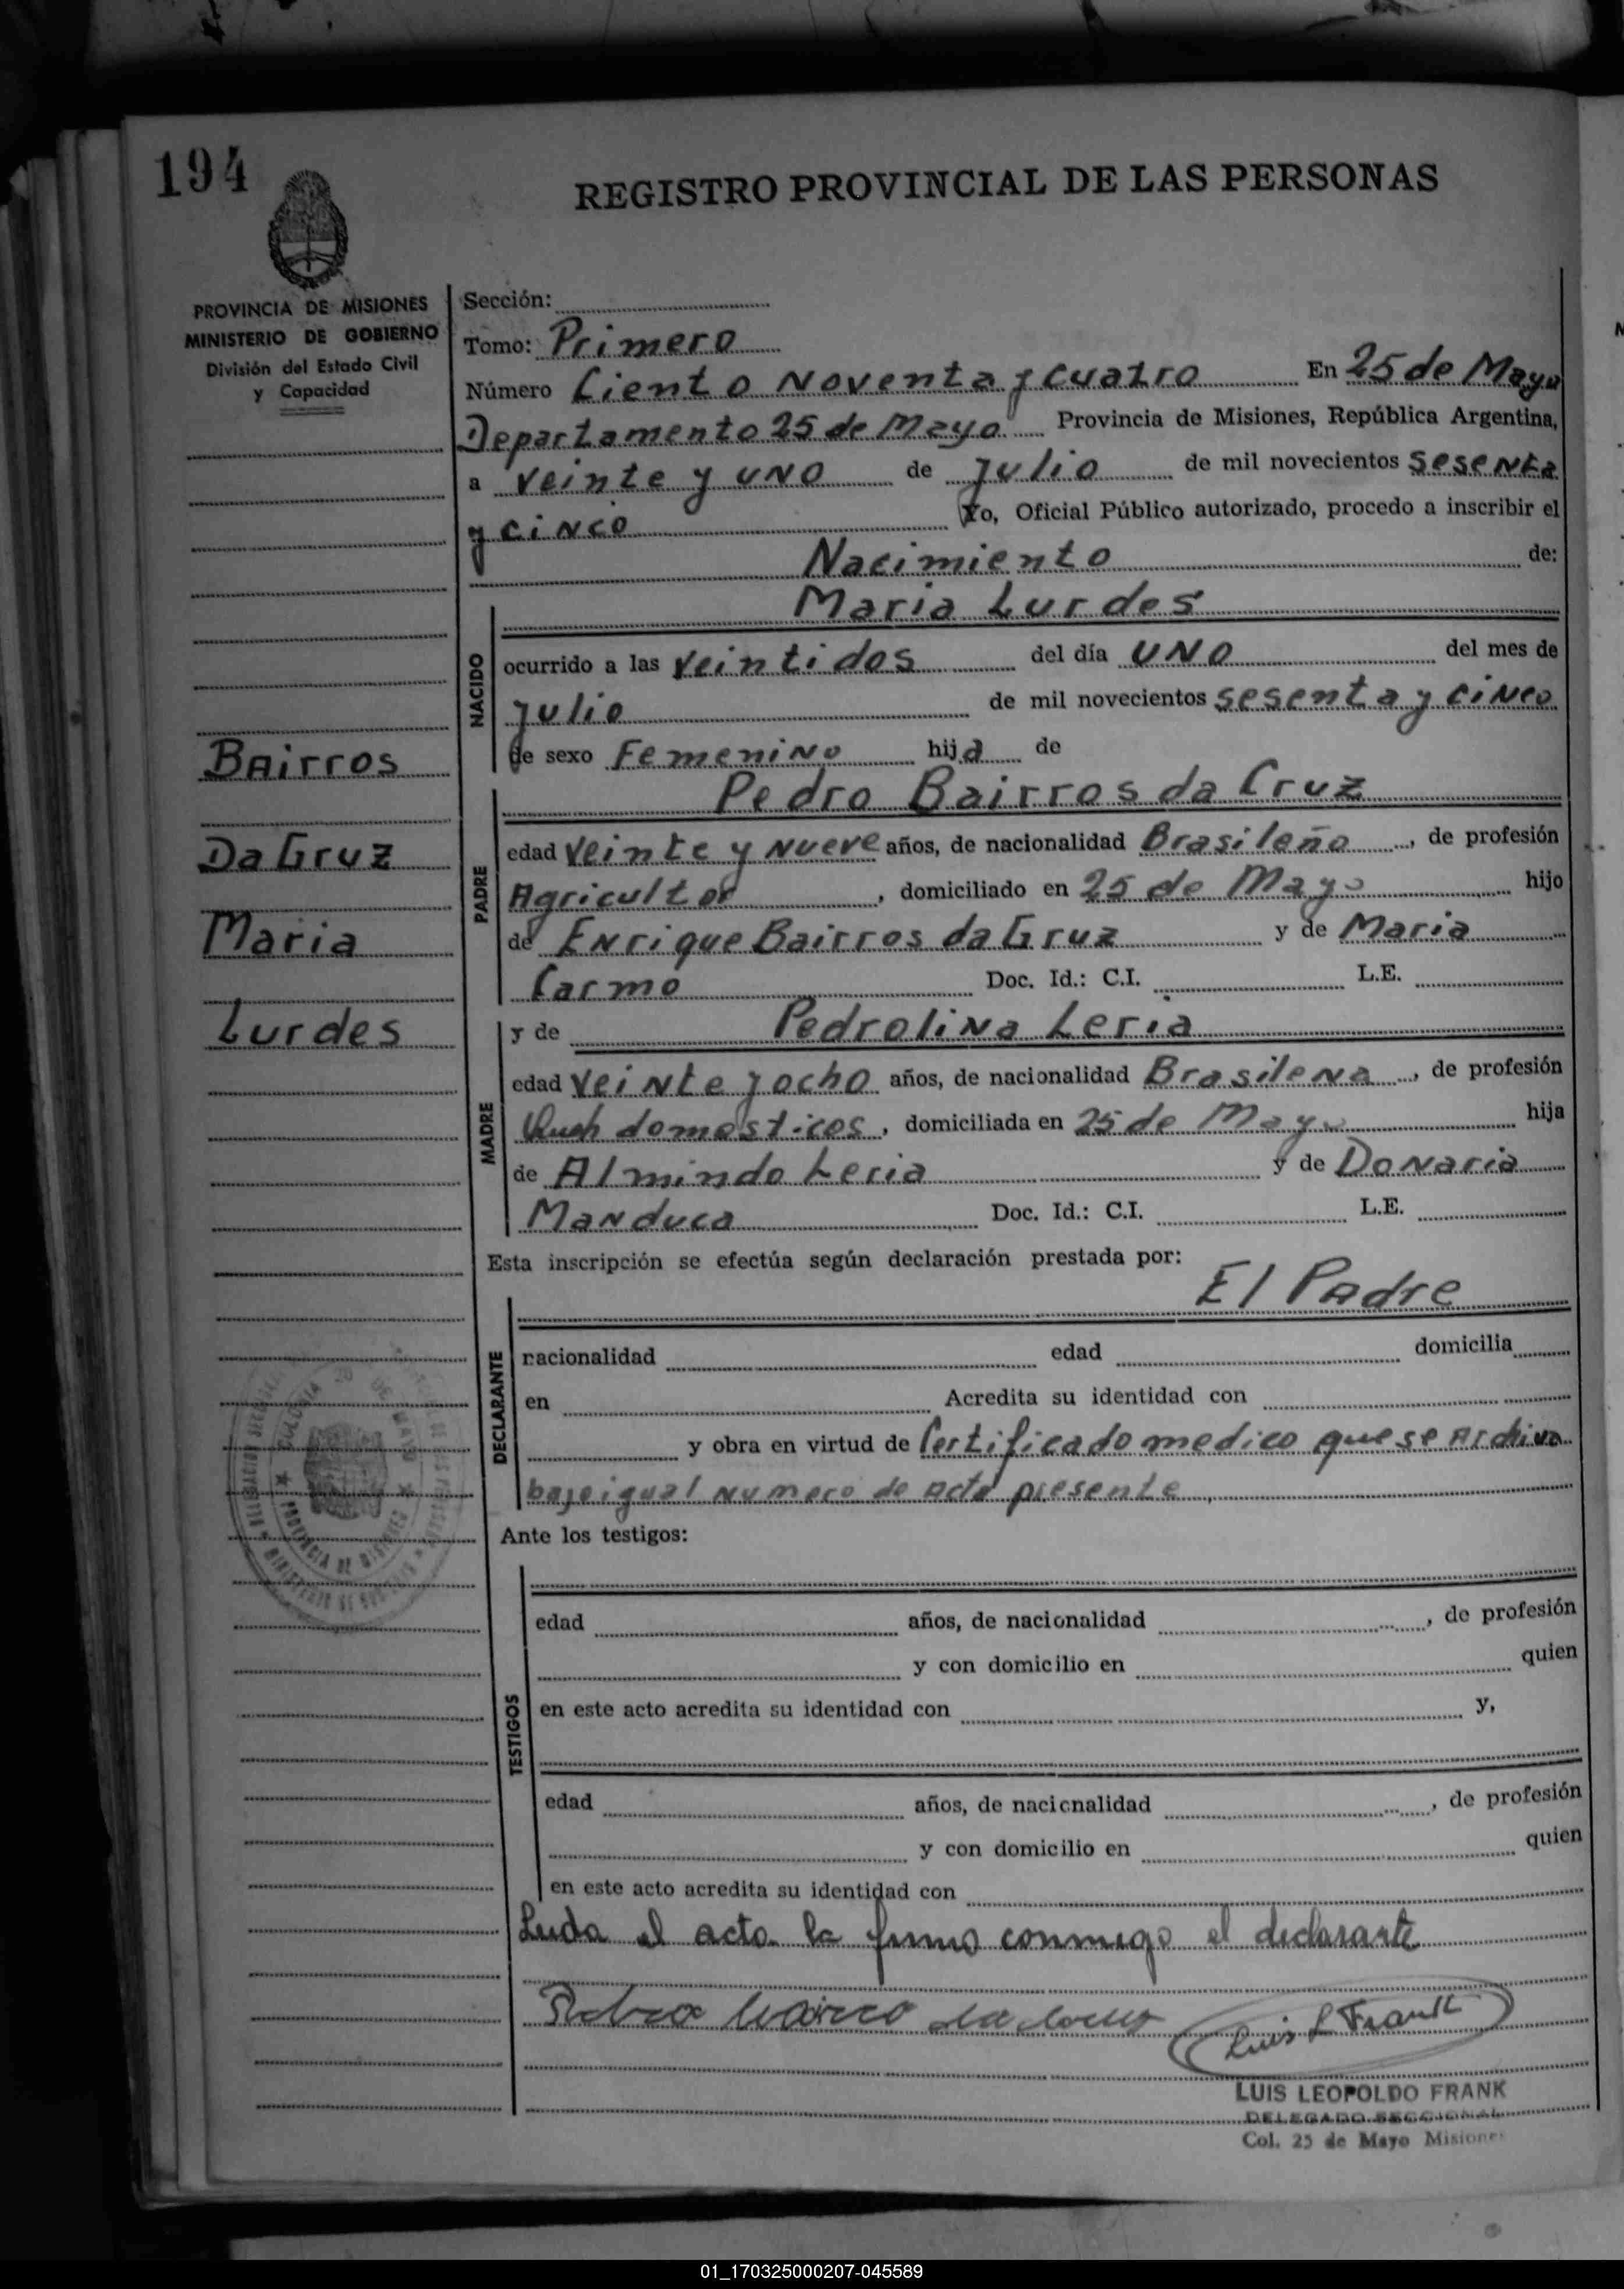 194
REGISTRO PROVINCIAL DE LAS PERSONAS
PROVINCIA DE MISIONES
MINISTERIO DE GOBIERNO
División del Estado Civil
y Capacidad
Sección:
Tomo: Primero
Número Ciento Noventa y cuatro En 25 de Mayo
Departamento 25 de Mayo Provincia de Misiones, República Argentina,
a veinte y uno de julio de mil novecientos sesenta
y cinco Yo, Oficial Público autorizado, procedo a inscribir el
Nacimiento de:
Maria Lurdes
NACIDO
ocurrido a las veintidos del día uno del mes de
julio de mil novecientos sesenta y cinco
de sexo Femenino hija de
Bairros
Da Cruz
Maria
Lurdes
Pedro Bairros da Cruz
PADRE
edad veinte y nueve años, de nacionalidad Brasileño, de profesión
Agricultor, domiciliado en 25 de Mayo hijo
de Enrique Bairros da Cruz y de Maria
Carmo Doc. Id.: C.I. L.E.
y de Pedrolina Leria
MADRE
edad veinte y ocho años, de nacionalidad Brasilena, de profesión
domesticos, domiciliada en 25 de Mayo hija
de Almindo Leria y de Donaria
Manduca Doc. Id.: C.I. L.E.
Esta inscripción se efectúa según declaración prestada por:
El Padre
DECLARANTE
nacionalidad edad domicilia
en Acredita su identidad con
y obra en virtud de Certificado medico que se Archiva
bajo igual numero de acta presente
Ante los testigos:
TESTIGOS
edad años, de nacionalidad , de profesión
y con domicilio en quien
en este acto acredita su identidad con y,
edad años, de nacionalidad , de profesión
y con domicilio en quien
en este acto acredita su identidad con
Leida el acta la firma conmigo el declarante
Luis L Frank
LUIS LEOPOLDO FRANK
DELEGADO SECCIONAL
Col. 25 de Mayo Misiones
01_170325000207-045589